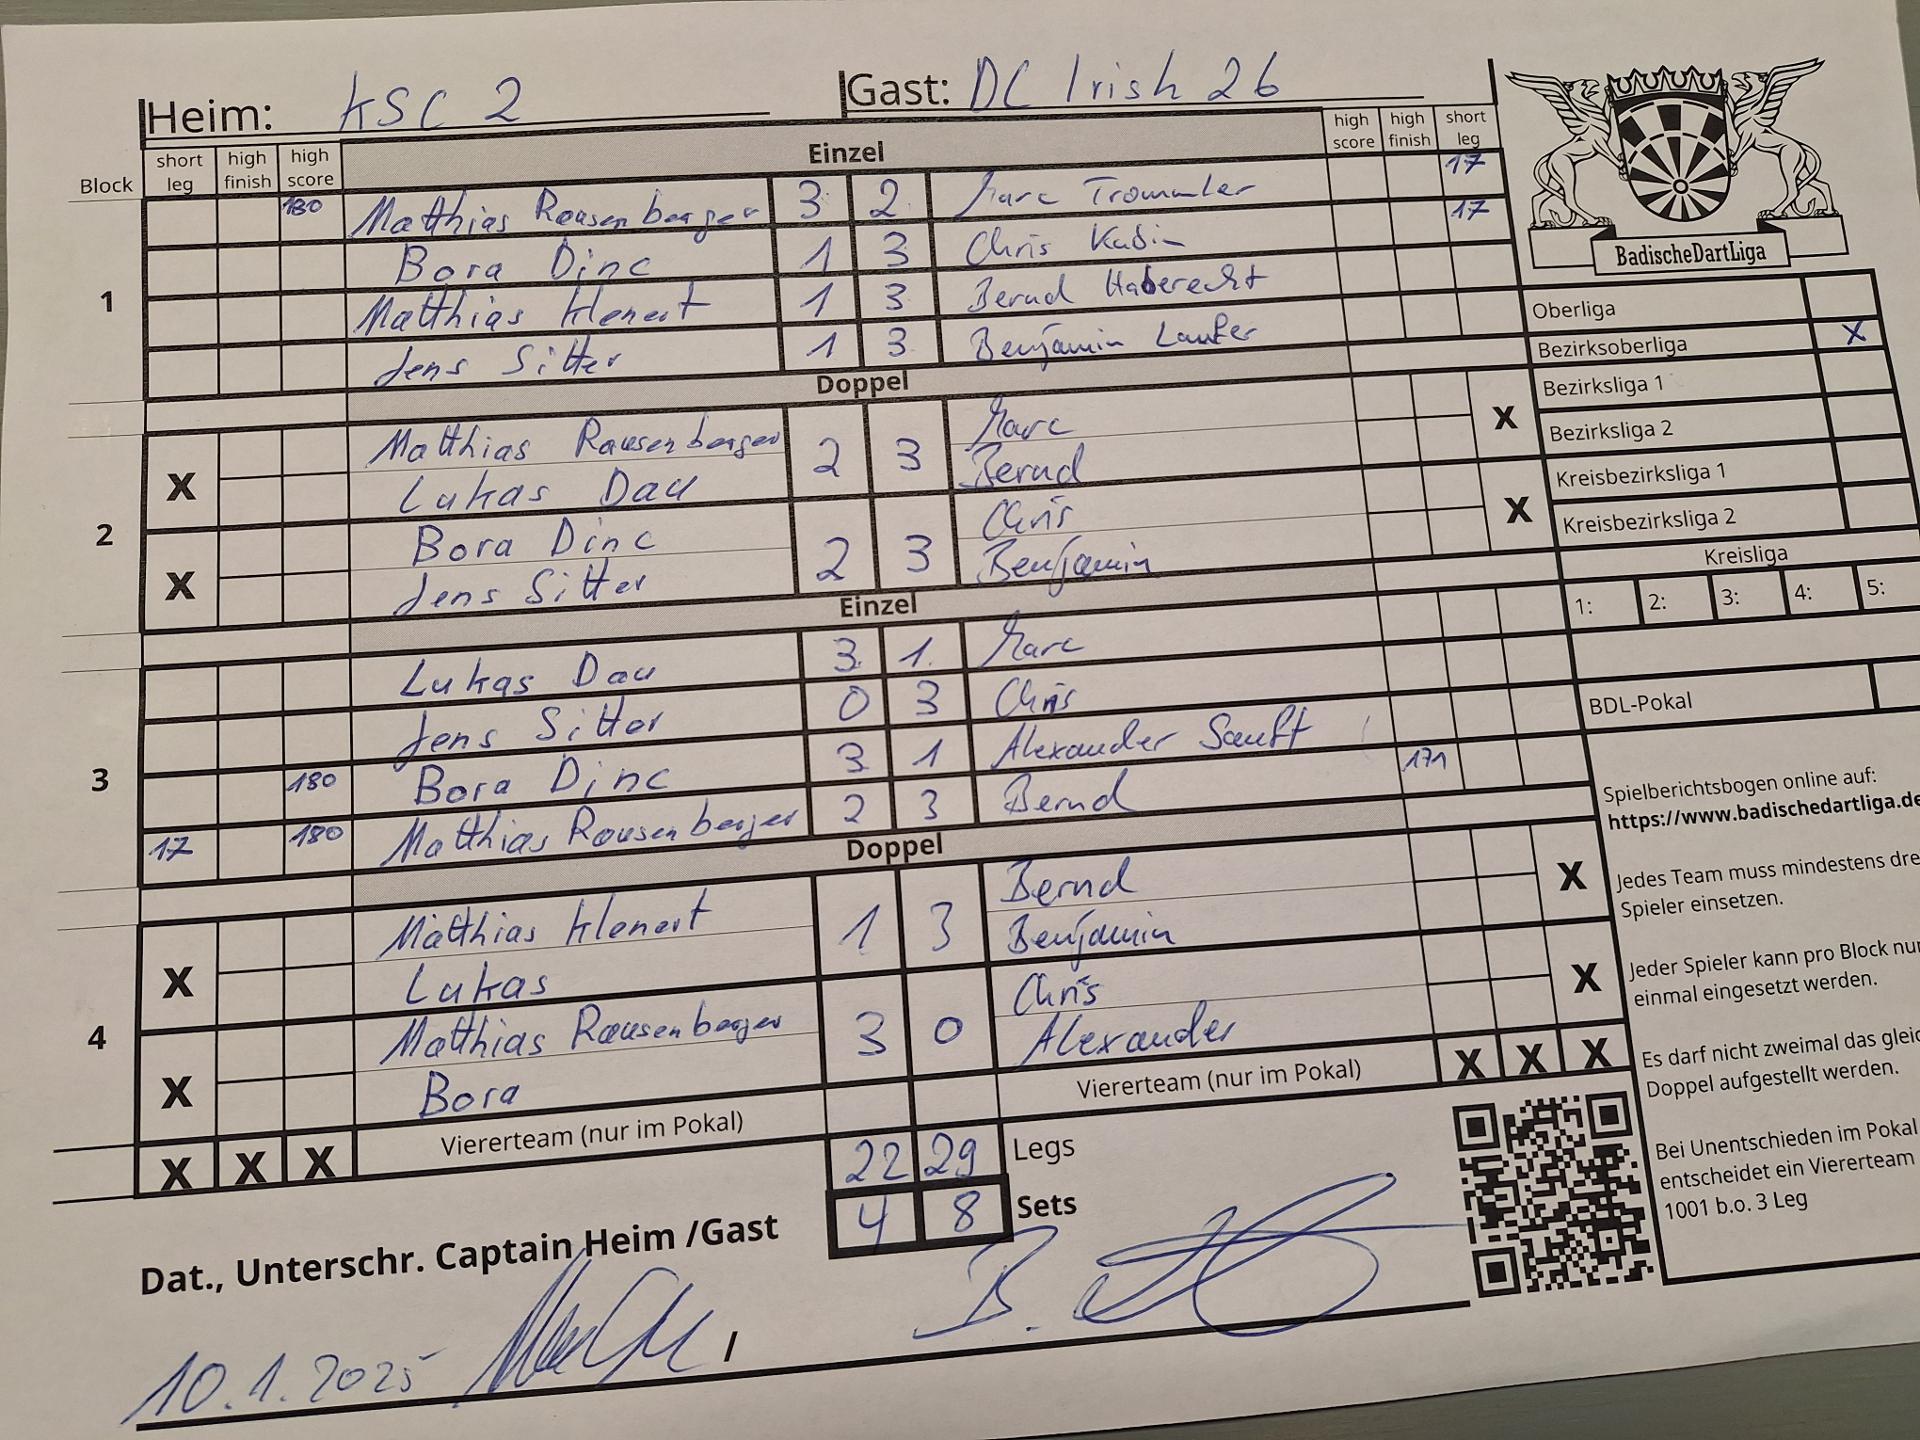 Heim: KSC 2 Gast: DC Irish 26
Block short leg high finish high score Einzel high score high finish short leg
180 Matthias Rausenberger 3 2 Marc Trommler 17
Bora Dinc 1 3 Chris Kubin 17
1 Matthias Klenert 1 3 Bernd Haberecht
Jens Sitter 1 3 Benjamin Laufer
Doppel
Matthias Rausenberger 2 3 Marc
X Lukas Dau Bernd X
2 Bora Dinc 2 3 Chris
X Jens Sitter Benjamin X
Einzel
Lukas Dau 3 1 Marc
Jens Sitter 0 3 Chris
3 180 Bora Dinc 3 1 Alexander Sanft
17 180 Matthias Rausenberger 2 3 Bernd 171
Doppel
Matthias Klenert 1 3 Bernd
X Lukas Benjamin X
4 Matthias Rausenberger 3 0 Chris
X Bora Alexander X
X X X Viererteam (nur im Pokal) Viererteam (nur im Pokal) X X X
22 29 Legs
4 8 Sets
Dat., Unterschr. Captain Heim /Gast
10.1.2025 /
BadischeDartLiga
Oberliga
Bezirksoberliga X
Bezirksliga 1
Bezirksliga 2
Kreisbezirksliga 1
Kreisbezirksliga 2
Kreisliga
1: 2: 3: 4: 5:
BDL-Pokal
Spielberichtsbogen online auf:
https://www.badischedartliga.de
Jedes Team muss mindestens dre
Spieler einsetzen.
Jeder Spieler kann pro Block nu
einmal eingesetzt werden.
Es darf nicht zweimal das gleic
Doppel aufgestellt werden.
Bei Unentschieden im Pokal
entscheidet ein Viererteam
1001 b.o. 3 Leg